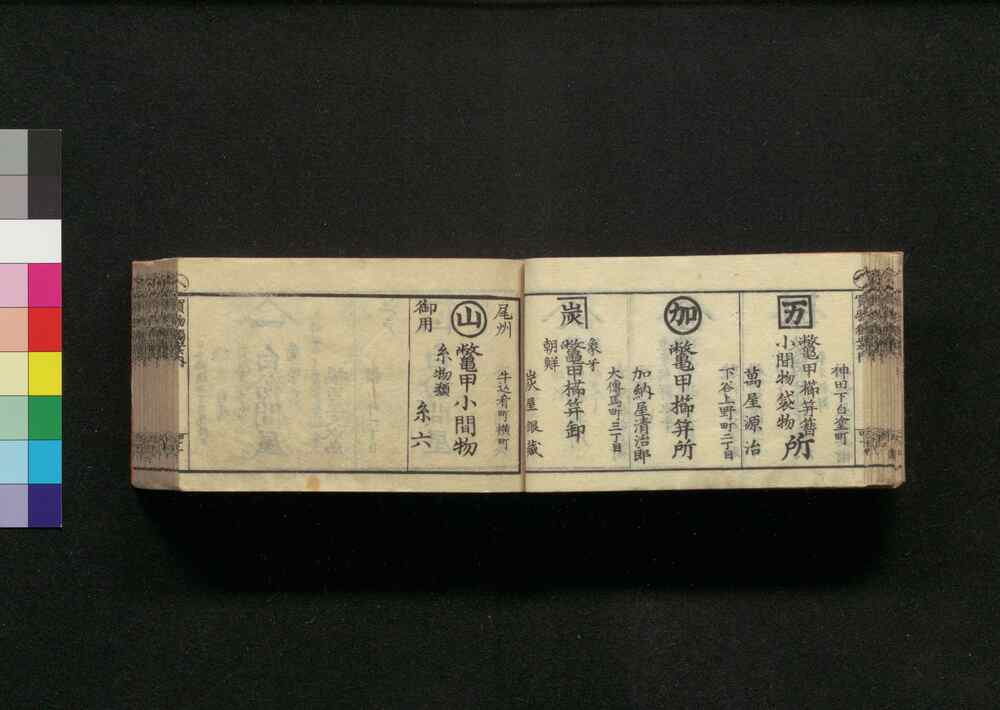 万
鼈甲櫛笄簪
小間物袋物
所
神田下白壁町
萬屋源治
加
鼈甲櫛笄所
下谷上野町二丁目
加納屋清治郎
炭
象牙
朝鮮
鼈甲櫛笄卸
大傳馬町三丁目
炭屋銀藏
山
尾州
御用
鼈甲小間物
糸物類
牛込肴町横町
糸六